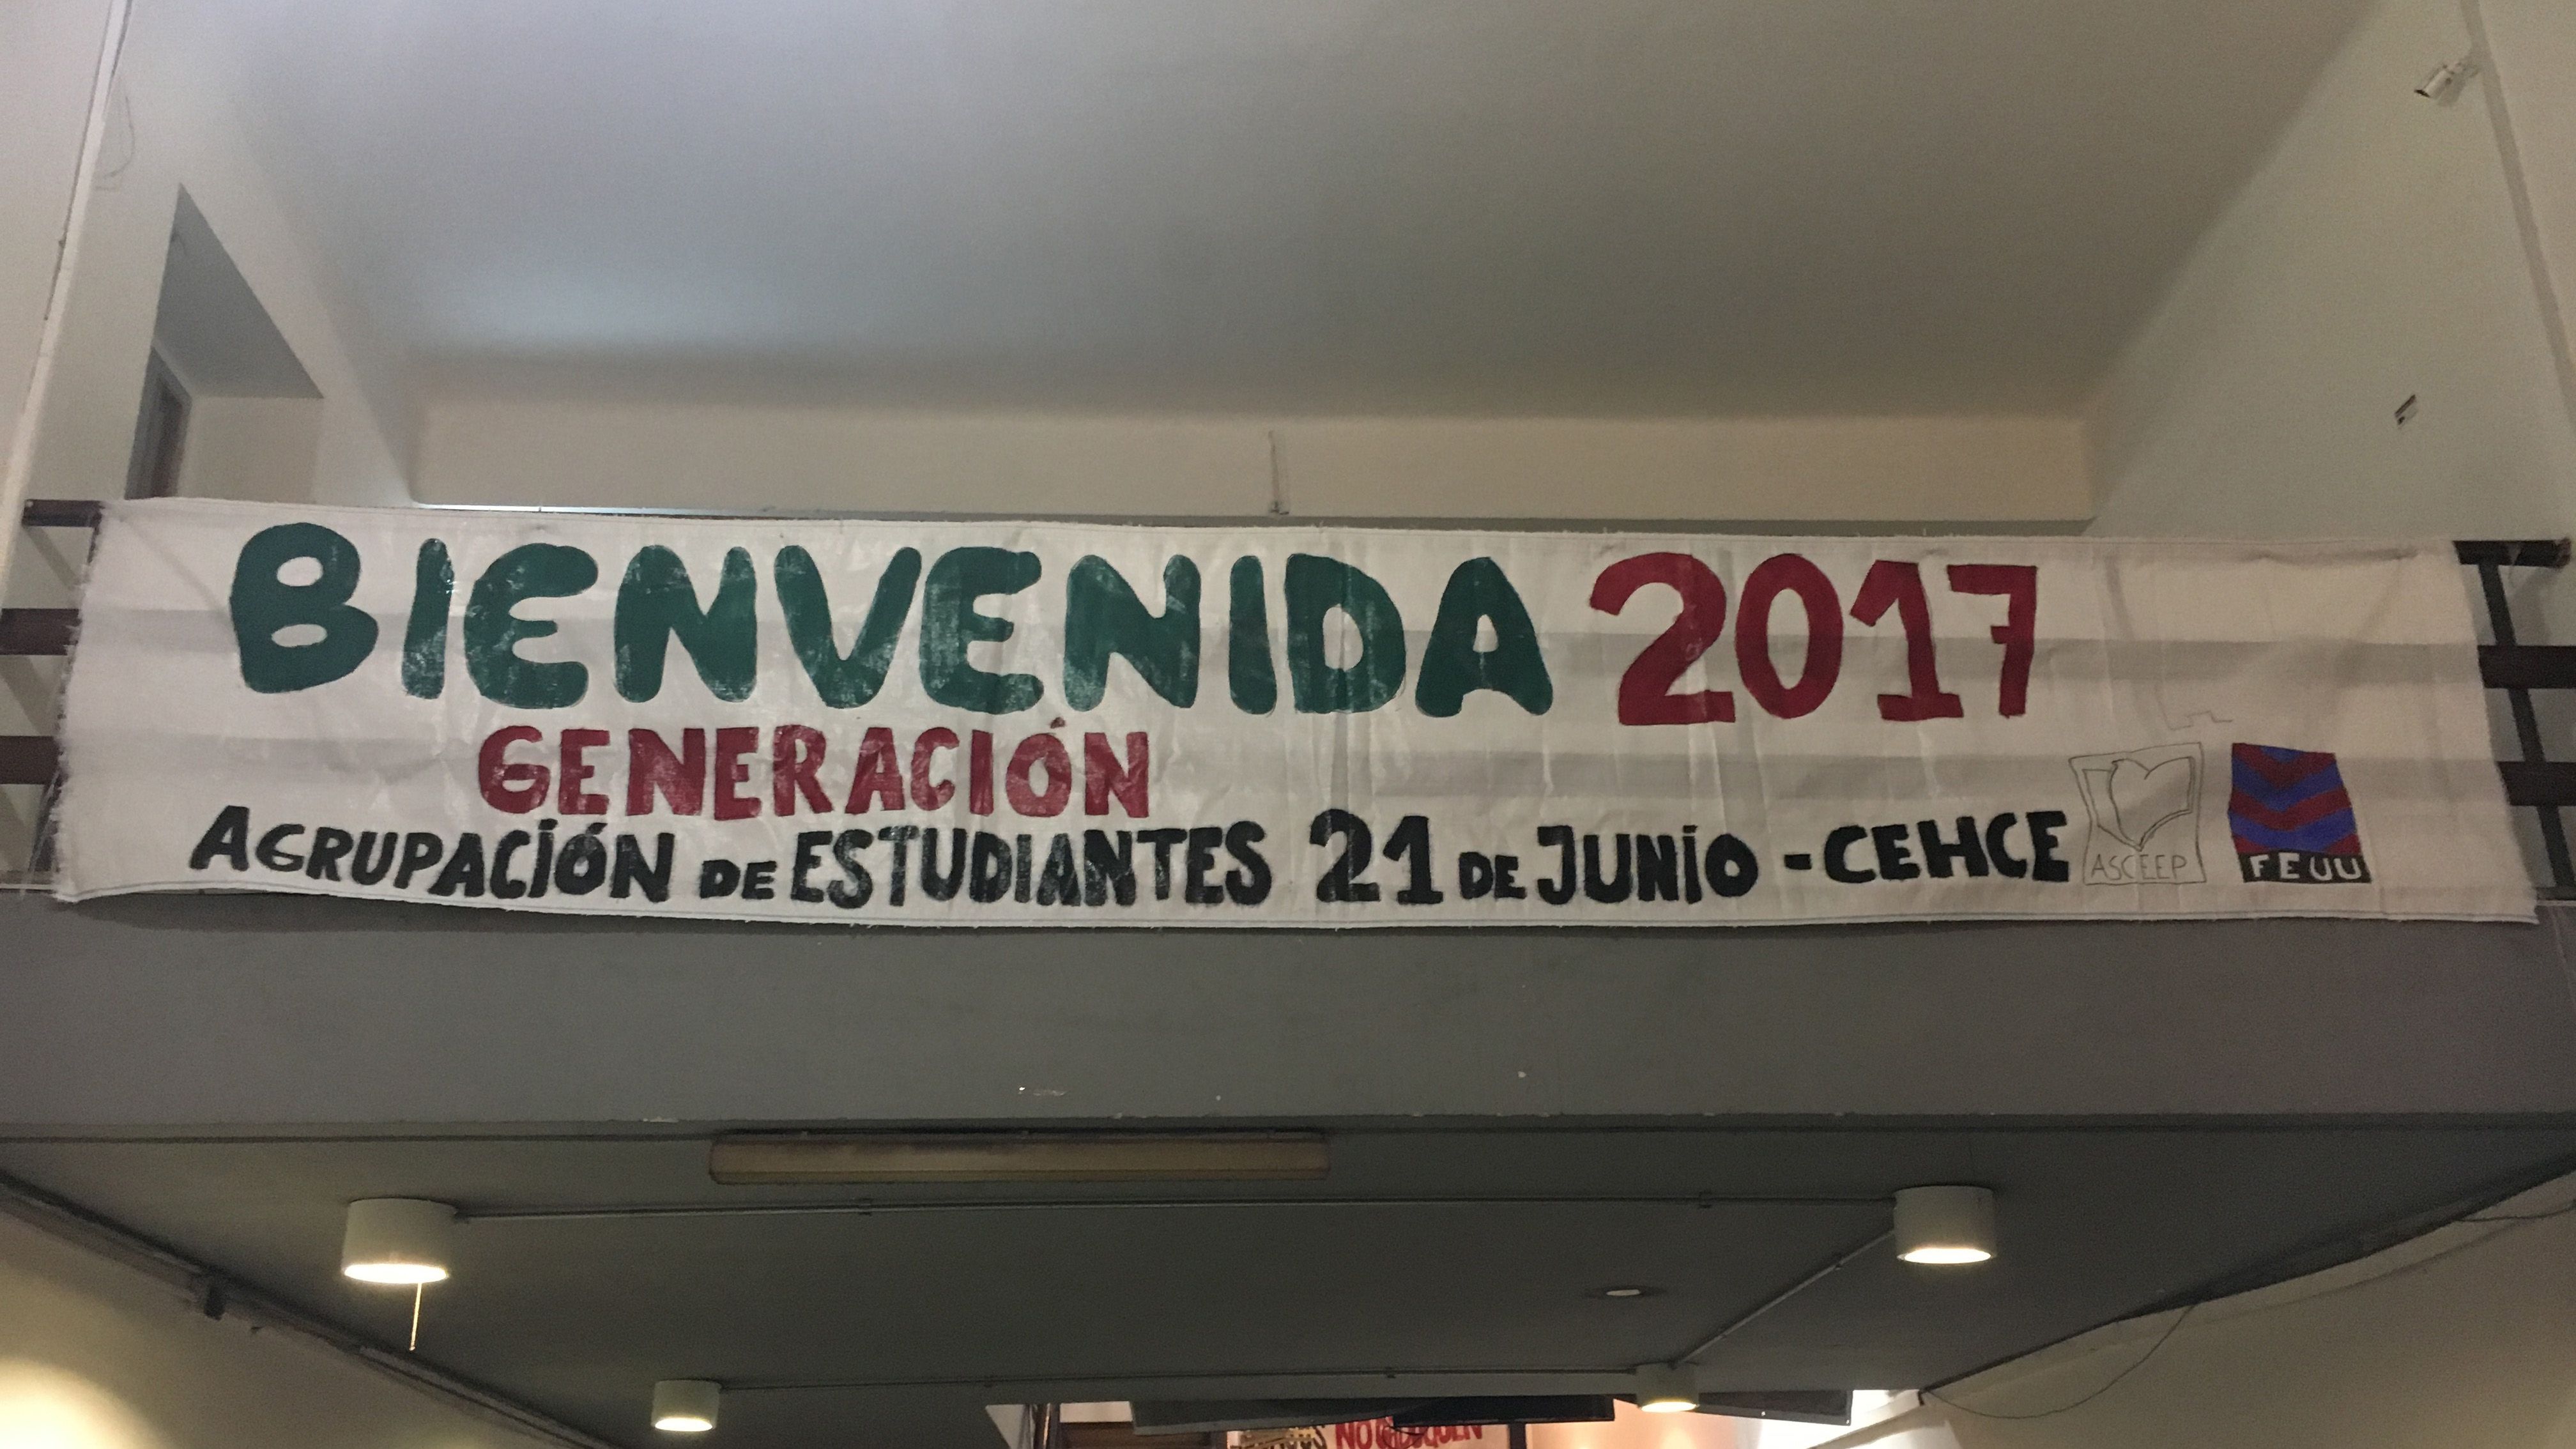 BIENVENIDA 2017
GENERACIÓN
AGRUPACIÓN DE ESTUDIANTES 21 DE JUNIO - CEHCE
ASCEEP
FEUU
NO